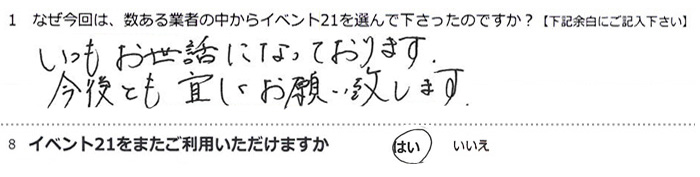 1 なぜ今回は、数ある業者の中からイベント21を選んで下さったのですか？【下記余白にご記入下さい】
いつもお世話になっております.
今後とも宜しくお願い致します.
8 イベント21をまたご利用いただけますか はい いいえ